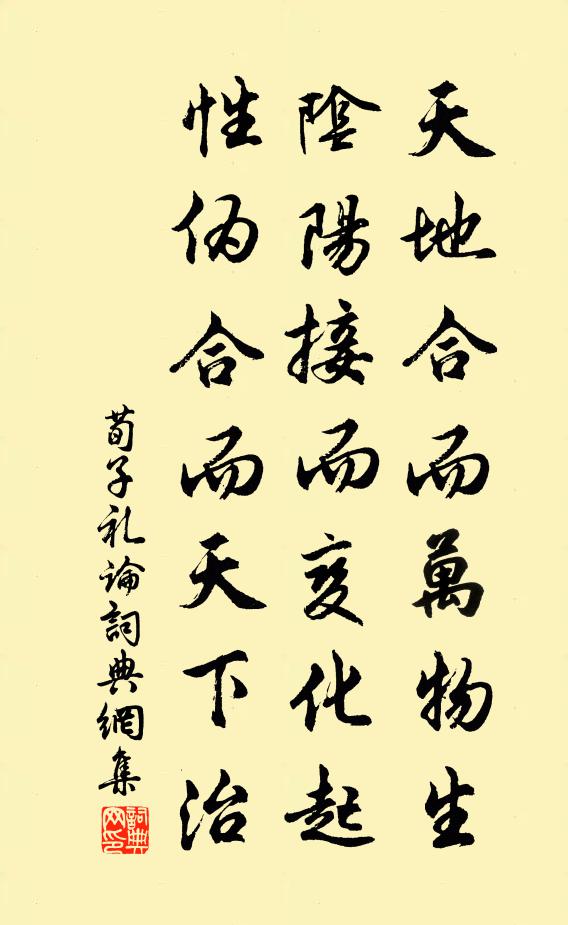 天地合而萬物生
陰陽接而变化起
性伪合而天下治
荀子礼论詞典網集
詞典
网印